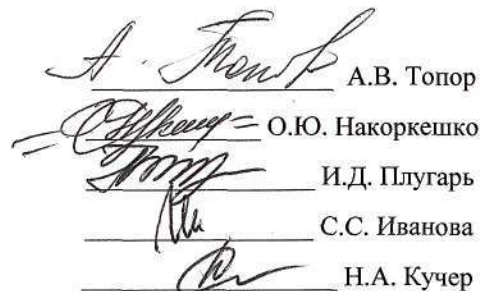 А. Топор А.В. Топор
О.Ю. Накоркешко
И.Д. Плугарь
С.С. Иванова
Н.А. Кучер